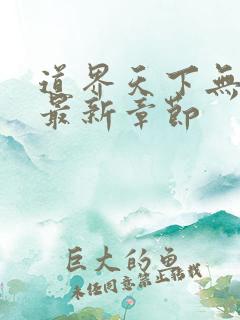 道界天下無
最新章節
巨大的魚
未经同意禁止转载